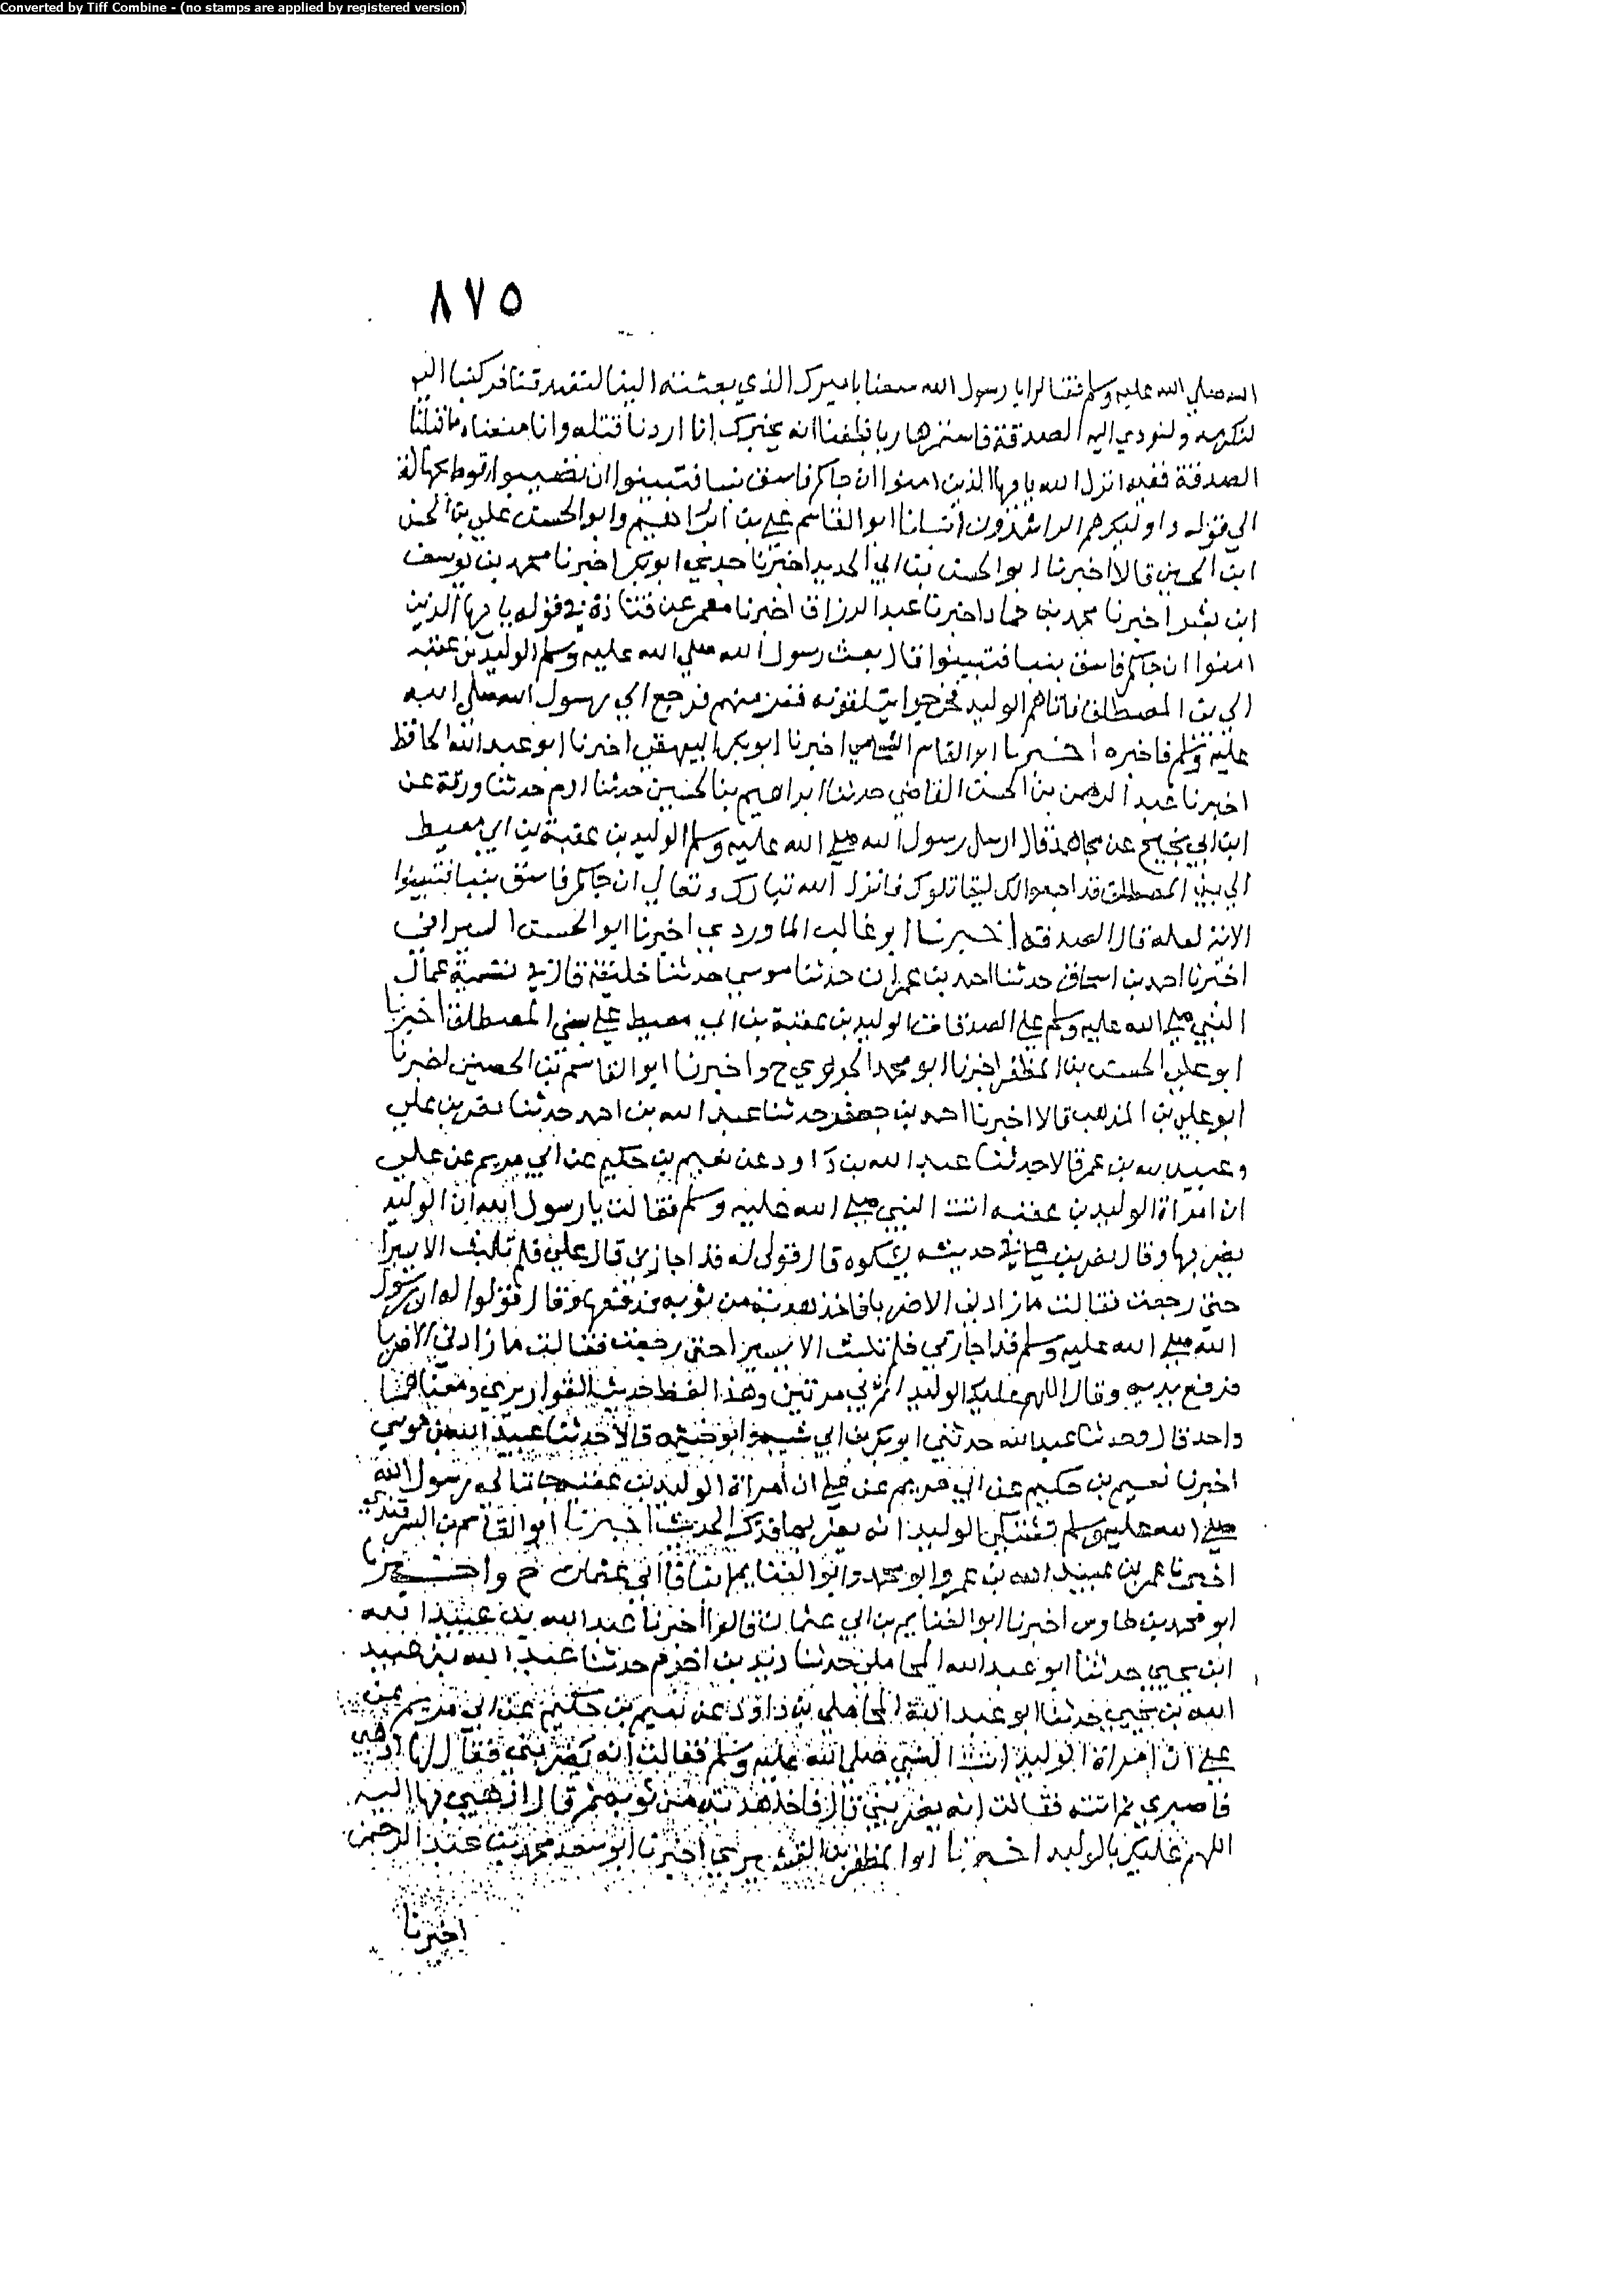 Converted by Tiff Combine - (no stamps are applied by registered version)
٨٧٥
الله صلي الله عليه وسلم فقالوا يا رسول الله سمعنا باميرك الذي بعثته الينا لتصدقنا فركبنا اليه
لنكرمه ولنودي اليه الصدقة فاستمر هاربا فبلغنا انه يخبرك انا اردنا قتله وانا منعناه ما قبلنا
الصدقة ففيه انزل الله يا ايها الذين امنوا ان جاكم فاسق بنبا فتبينوا ان تصيبوا قوما بجهالة
الي قوله واوليك هم الراشدون انبانا ابو القاسم علي بن ابراهيم وابو الحسن علي بن الحسن
ابن الحسين قالا اخبرنا ابو الحسن بن ابي الحديد اخبرنا جدي ابو بكر اخبرنا محمد بن يوسف
ابن بشر اخبرنا محمد بن حماد اخبرنا عبد الرزاق اخبرنا معمر عن قتادة في قوله يا ايها الذين
امنوا ان جاكم فاسق بنبا فتبينوا قال بعث رسول الله صلي الله عليه وسلم الوليد بن عقبه
الي بني المصطلق فاتاهم الوليد فخرجوا يتلقونه ففزع منهم فرجع الي رسول الله صلى الله
عليه وسلم فاخبره اخبرنا ابو القاسم الشحامي اخبرنا ابو بكر البيهقي اخبرنا ابو عبد الله الحافظ
اخبرنا عبد الرحمن بن الحسن القاضي حدثنا ابراهيم بن الحسين حدثنا ادم حدثنا ورقة عن
ابن ابي نجيح عن مجاهد قال ارسل رسول الله صلي الله عليه وسلم الوليد بن عقبة بن ابي معيط
الي بني المصطلق قد اجمعوا لك ليقاتلوك فانزل الله تبارك وتعالي ان جاكم فاسق بنبا فتبينوا
الاية لعله قال الصدقه اخبرنا ابو غالب الماوردي اخبرنا ابو الحسن السيرافي
اخبرنا احمد بن اسحاق حدثنا احمد بن عمران حدثنا موسي حدثنا خليفة قال في تسمية عمال
النبي صلي الله عليه وسلم علي الصدقات الوليد بن عقبة بن ابي معيط علي بني المصطلق اخبرنا
ابو علي الحسن بن المظفر اخبرنا ابو محمد الجوهري ح واخبرنا ابو القاسم بن الحصين اخبرنا
ابو علي بن المذهب قالا اخبرنا احمد بن جعفر حدثنا عبد الله بن احمد حدثنا نصر بن علي
وعبيد الله بن عمر قالا حدثنا عبد الله بن داود عن نعيم بن حكيم عن ابي مريم عن علي
ان امراة الوليد بن عقبه اتت النبي صلي الله عليه وسلم فقالت يا رسول الله ان الوليد
يضربها وقال نصر بن علي في حديثه يشكوه قال قولي له قد اجارني قال علي فلم تلبث الا يسيرا
حتى رجعت فقالت ما زادني الا ضربا فاخذ هدبة من ثوبه فدفعها وقال قولوا له ان رسول
الله صلي الله عليه وسلم قد اجارني فلم تلبث الا يسيرا حتى رجعت فقالت ما زادني الا ضربا
فرفع يديه وقال اللهم عليك الوليد اثم بي مرتين وهذا لفظ حديث القواريري ومعناهما
واحد قال وحدثنا عبد الله حدثني ابو بكر بن ابي شيبه وابو خيثمه قالا حدثنا عبيد الله بن موسي
اخبرنا نعيم بن حكيم عن ابي مريم عن علي ان امراة الوليد بن عقبه جات الى رسول الله
صلي الله عليه وسلم تشتكي الوليد انه يضربها فذكر الحديث اخبرنا ابو القاسم بن السمرقندي
اخبرنا عمر بن عبيد الله بن عمر وابو محمد وابو الغنايم ابنا ابي عثمان ح واخبرنا
ابو محمد بن طاوس اخبرنا ابو الغنايم بن ابي عثمان قالوا اخبرنا عبد الله بن عبيد الله
ابن يحيي حدثنا ابو عبد الله المحاملي حدثنا زيد بن اخزم حدثنا عبد الله بن عبيد
الله بن يحيي حدثنا ابو عبد الله المحاملي بن داود عن نعيم بن حكيم عن ابي مريم عن
علي ان امراة الوليد اتت النبي صلي الله عليه وسلم فقالت انه يضربني فقال لها اذهبي
فاصبري ثم اتته فقالت انه يضربني قال فاخذ هدبة من ثوبه ثم قال اذهبي بها اليه
اللهم عليك بالوليد اخبرنا ابو المظفر بن القشيري اخبرنا ابو سعد محمد بن عبد الرحمن
اخبرنا